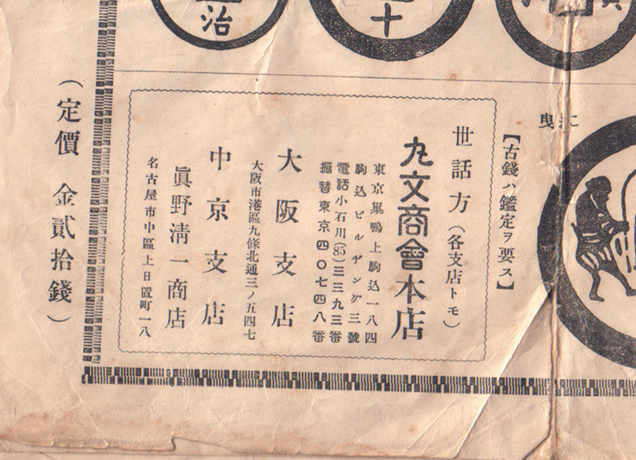 治
十
江曳
【古錢ハ鑑定ヲ要ス】
世話方（各支店トモ）
丸文商會本店
東京巣鴨上駒込一八四
駒込ビルヂング三號
電話小石川(85)三三九三番
振替東京四〇七四八番
大阪支店
大阪市港區九條北通三ノ五四七
中京支店
眞野淸一商店
名古屋市中區上日置町一八
（定價 金貳拾錢）